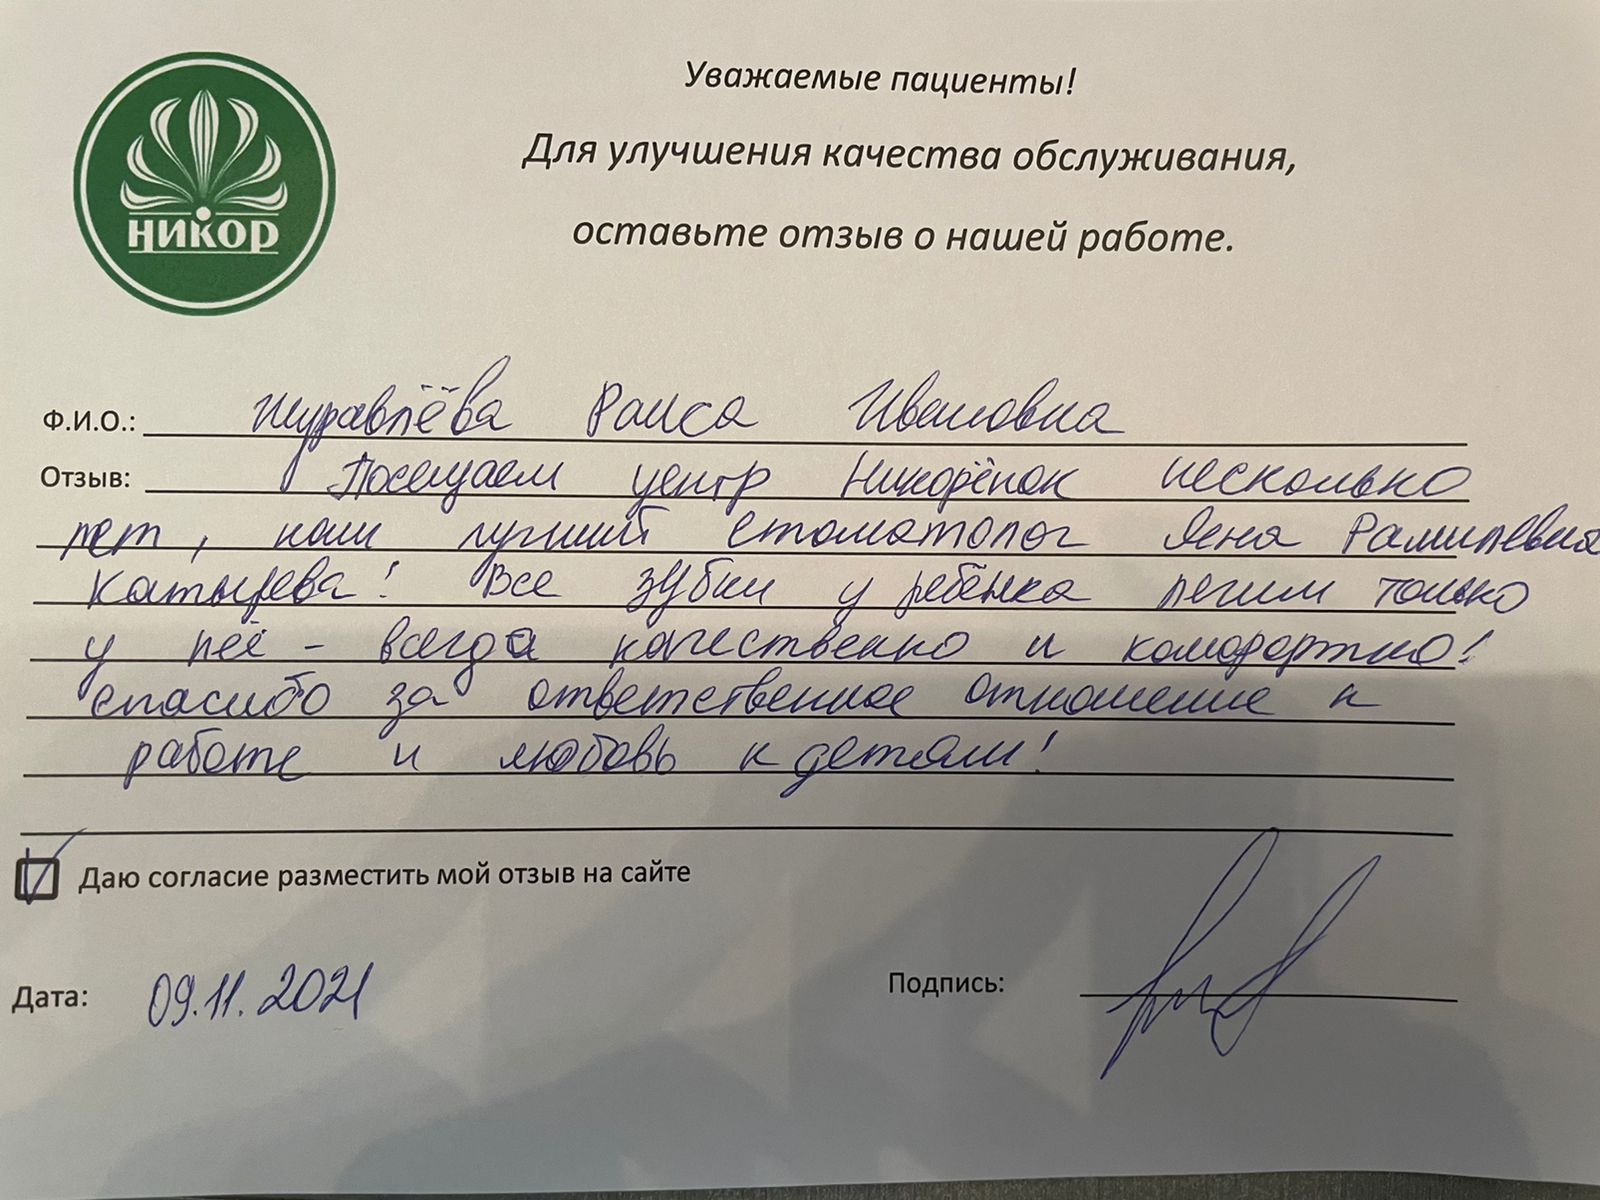 НИКОР
Уважаемые пациенты!
Для улучшения качества обслуживания,
оставьте отзыв о нашей работе.
Ф.И.О.: Журавлёва Раиса Ивановна
Отзыв: Посещаем центр Никорёнок несколько
лет, наш лучший стоматолог Яна Рамилевна
Катырева! Все зубки у ребёнка лечим только
у неё - всегда качественно и комфортно!
спасибо за ответственное отношение к
работе и любовь к детям!
Даю согласие разместить мой отзыв на сайте
Дата: 09.11.2021
Подпись: